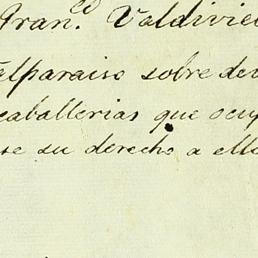 Fran.co Valdivie
alparaiso sobre dev
caballerias que ocup
se su derecho a ello